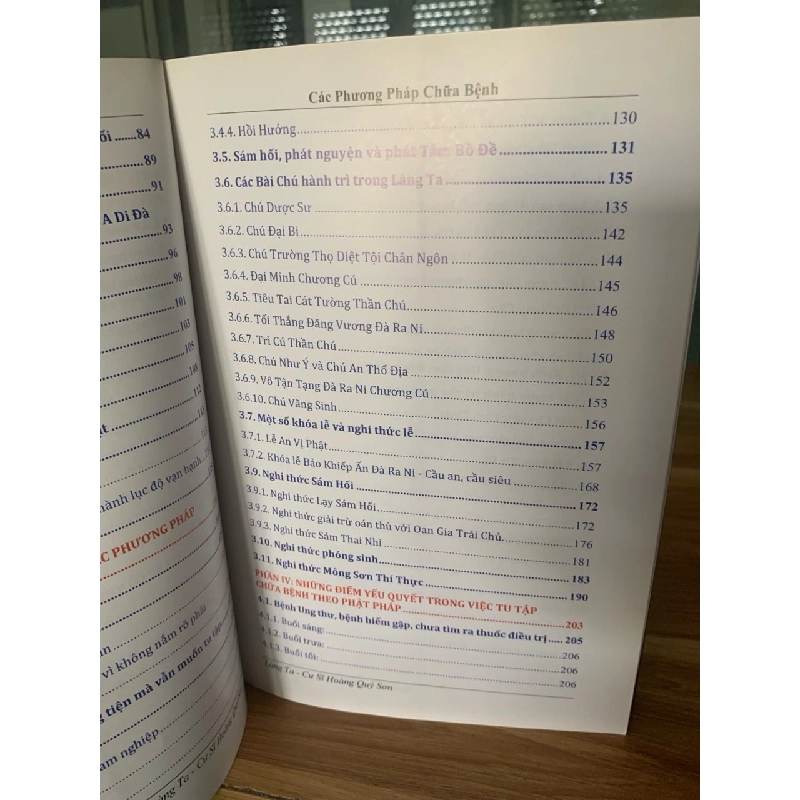 ối ......84
89
91
A Di Đà
93
96
98
101
103
105
108
112
hành lục độ vạn hạnh
C PHƯƠNG PHÁP
vì không nắm rõ phải
g tiện mà vẫn muốn tu tập
am nghiệp
Ta - Cư Sĩ Hoàng
Các Phương Pháp Chữa Bệnh
3.4.4. Hồi Hướng 130
3.5. Sám hối, phát nguyện và phát Tâm Bồ Đề 131
3.6. Các Bài Chú hành trì trong Làng Ta 135
3.6.1. Chú Dược Sư 135
3.6.2. Chú Đại Bi 142
3.6.3. Chú Trường Thọ Diệt Tội Chân Ngôn 144
3.6.4. Đại Minh Chương Cú 145
3.6.5. Tiêu Tai Cát Tường Thần Chú 146
3.6.6. Tối Thắng Đăng Vương Đà Ra Ni 148
3.6.7. Trì Cú Thần Chú 150
3.6.8. Chú Như Ý và Chú An Thổ Địa 152
3.6.9. Vô Tận Tạng Đà Ra Ni Chương Cú 153
3.6.10. Chú Vãng Sinh 156
3.7. Một số khóa lễ và nghi thức lễ 157
3.7.1. Lễ An Vị Phật 157
3.7.2. Khóa lễ Bảo Khiếp Ấn Đà Ra Ni - Cầu an, cầu siêu 168
3.9. Nghi thức Sám Hối 172
3.9.1. Nghi thức Lạy Sám Hối 172
3.9.2. Nghi thức giải trừ oán thù với Oan Gia Trái Chủ 176
3.9.3. Nghi thức Sám Thai Nhi 181
3.10. Nghi thức phóng sinh 183
3.11. Nghi thức Mông Sơn Thí Thực 190
PHẦN IV: NHỮNG ĐIỂM YẾU QUYẾT TRONG VIỆC TU TẬP
CHỮA BỆNH THEO PHẬT PHÁP 203
4.1. Bệnh Ung thư, bệnh hiếm gặp, chưa tìm ra thuốc điều trị 205
4.1.1. Buổi sáng: 206
4.1.2. Buổi trưa: 206
4.1.3. Buổi tối: 206
Làng Ta - Cư Sĩ Hoàng Quý Sơn